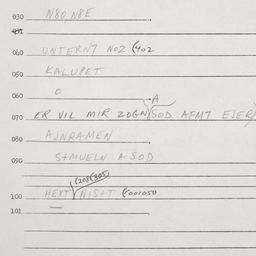 030 N80, N8E
031
040 UNTERN7 NOZ (402
050 KALUPET
060 O
A
070 ER VIL MIR ZOGN SOD AFM7 EJER
080 AJNRAMEN
090 S+MUELN A SOD
(208(305
100 HEYT NIS+T (001050
101